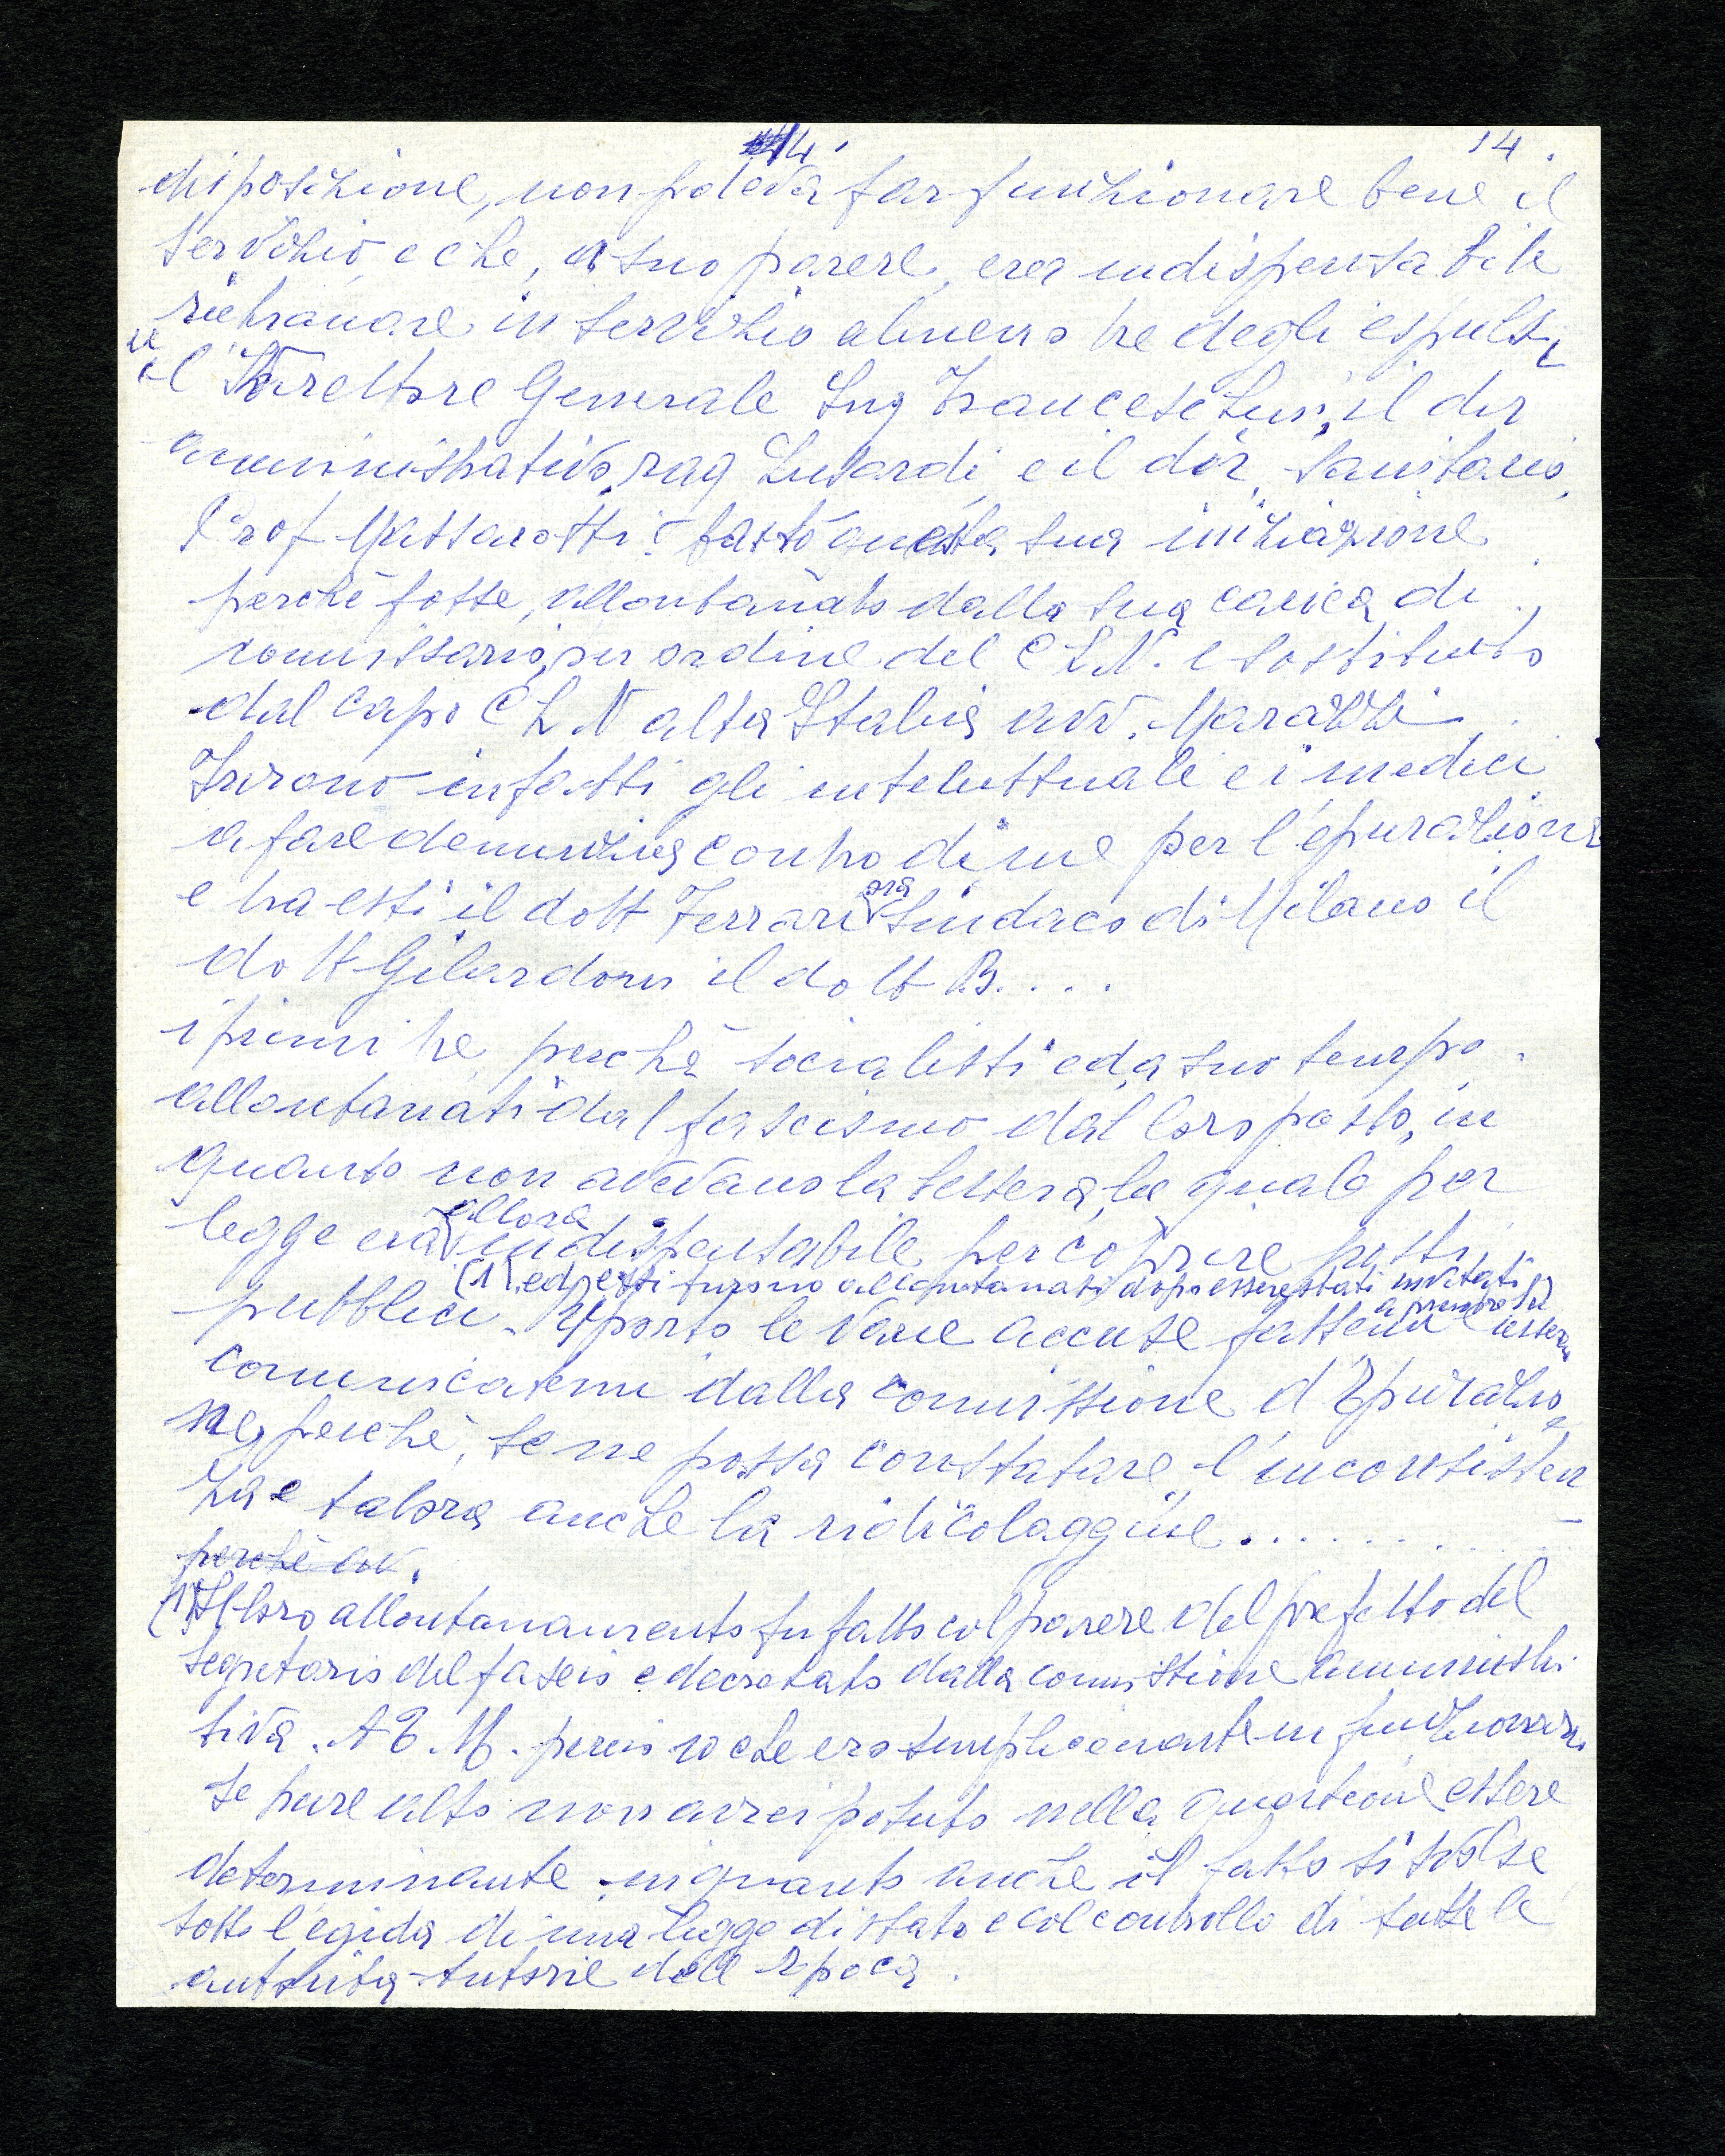 14. 14.
disposizione, non poteva far funzionare bene il
servizio, e che, a suo parere, era indispensabile
richiamare in servizio almeno tre degli espulsi
il Direttore Generale Ing Franceschini, il dir
amministrativo, rag Lusardi, e il dir. sanitario,
Prof Massarotti. Bastò questa sua
perchè fosse, allontanato dalla sua carica di
commissario, per ordine del C L N. e sostituito
dal capo C L N alta Italia avv. Marazzi.
Furono infatti gli intelettuali e i medici
a fare denunzia contro di me per l'epurazione
e tra essi il dott Ferrari ora Sindaco di Milano il
dott Gilardoni il dott B....
i primi tre, perchè socialisti ed a suo tempo
allontanati dal fascismo dal loro posto, in
quanto non avevano la tessera, la quale per
legge era allora indispensabile per coprire posti
(1) ed essi furono allontanati dopo essere stati invitati a prendere la tessera
pubblici. Riporto le varie accuse fattemi e
comunicatemi dalla commissione d'Epurazio
ne, perchè, se ne possa constatare l'inconsisten
za e talora anche la ridicolaggine..........
perchè avv.
(1) Il loro allontanamento fu fatto col parere del prefetto del
segretario del fascio e decretato dalla commissione amministra
tiva. A E. M. perciò io che ero semplicemente un funzionario,
se pure alto non avrei potuto nella questione essere
determinante in quanto anche il fatto si svolse
sotto l'egida di una legge di stato e col controllo di tutte le
autorità tutorie dell'Epoca.